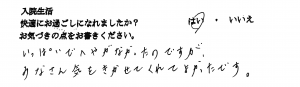 入院生活
快適にお過ごしになれましたか？ はい ・ いいえ
お気づきの点をお書きください。
いっぱいでへやがなかったのですが、
みなさん気をきかせてくれてよかったです。